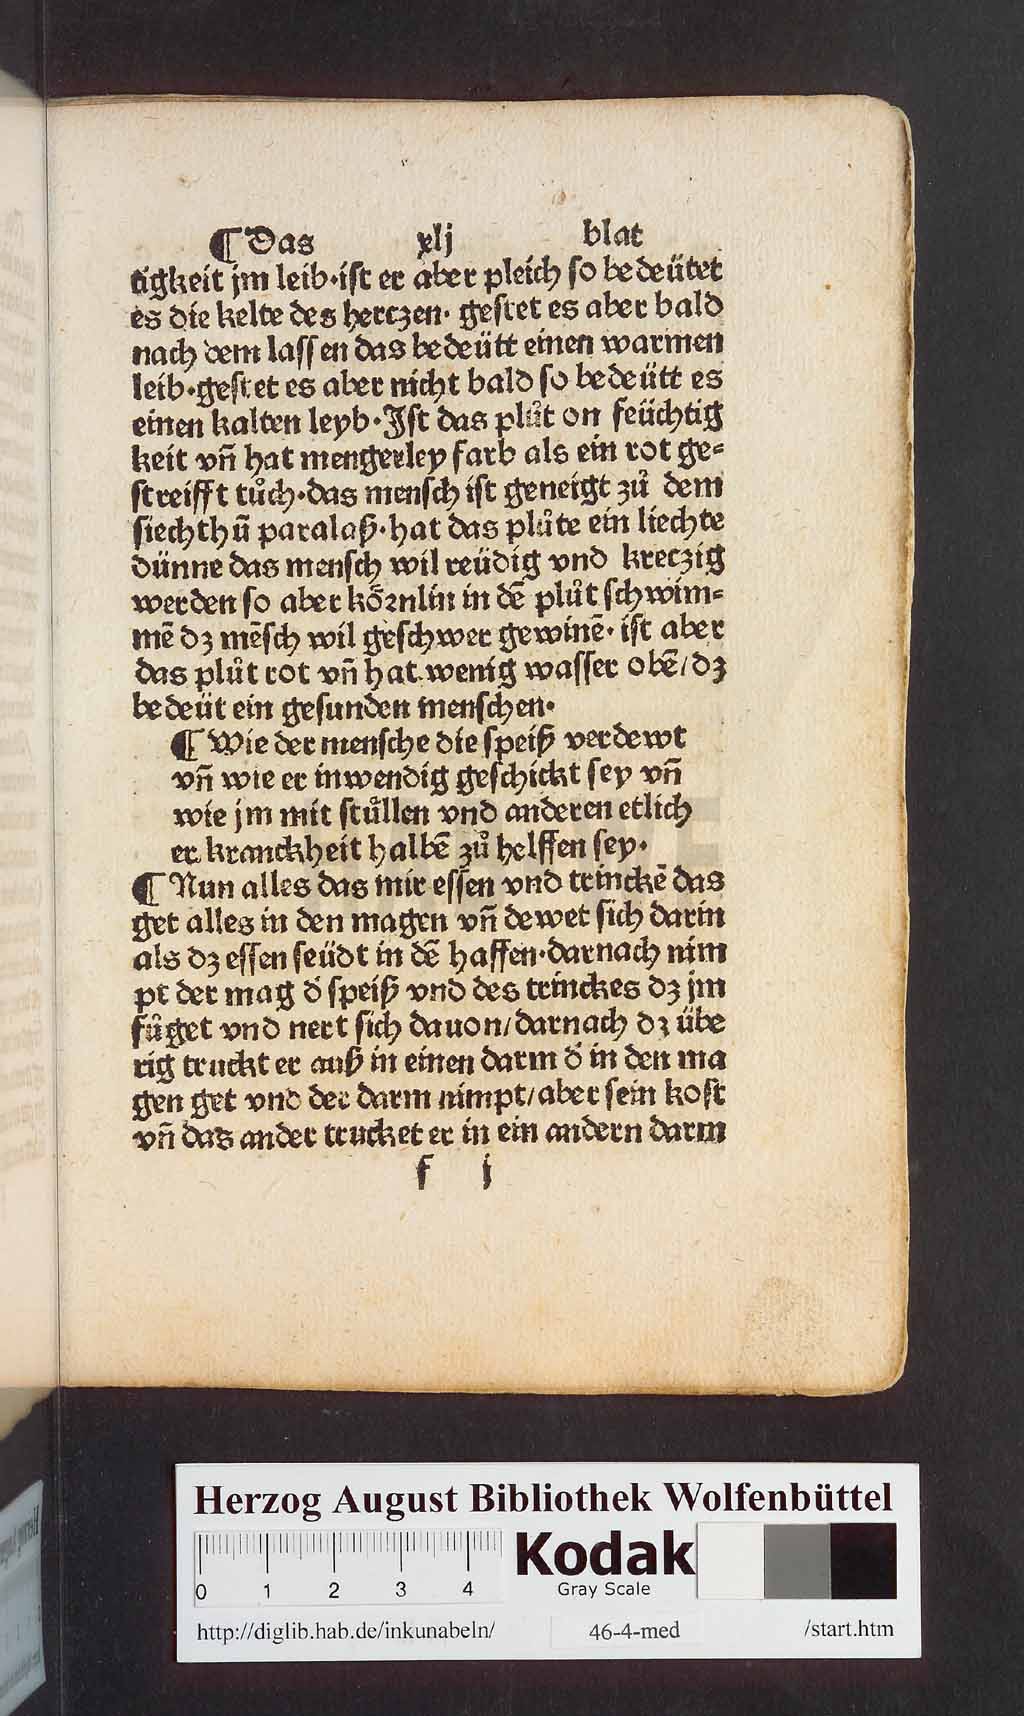 ¶ Das xlj blat
tigkeit jm leib·ist er aber pleich so bedeütet
es die kelte des hertzen· gestet es aber bald
nach dem lassen das bedeütt einen warmen
leib·gestet es aber nicht bald so bedeütt es
einen kalten leyb·Jst das plůt on feüchtig
keit vn̄ hat mengerley farb als ein rot ge⸗
streifft tůch·das mensch ist geneigt zů dem
siechthū paralaß·hat das plůte ein liechte
dünne das mensch wil reüdig vnd kreczig
werden so aber körnlin in dē plůt schwim⸗
mē dz mēsch wil geschwer gewinē· ist aber
das plůt rot vn̄ hat wenig wasser obē/dz
bedeüt ein gesunden menschen·
¶ Wie der mensche die speiß verdewt
vn̄ wie er inwendig geschickt sey vn̄
wie jm mit stůllen vnd anderen etlich
er kranckheit halbē zů helffen sey·
¶ Nun alles das mir essen vnd trinckē das
get alles in den magen vn̄ dewet sich darin
als dz essen seüdt in dē haffen·darnach nim
pt der mag d' speiß vnd des trinckes dz jm
fůget vnd nert sich dauon/darnach dz übe
rig truckt er auß in einen darm d' in den ma
gen get vnd der darm nimpt/aber sein kost
vn̄ das ander trucket er in ein andern darm
f j
Herzog August Bibliothek Wolfenbüttel
0 1 2 3 4
Kodak
Gray Scale
http://diglib.hab.de/inkunabeln/ 46-4-med /start.htm